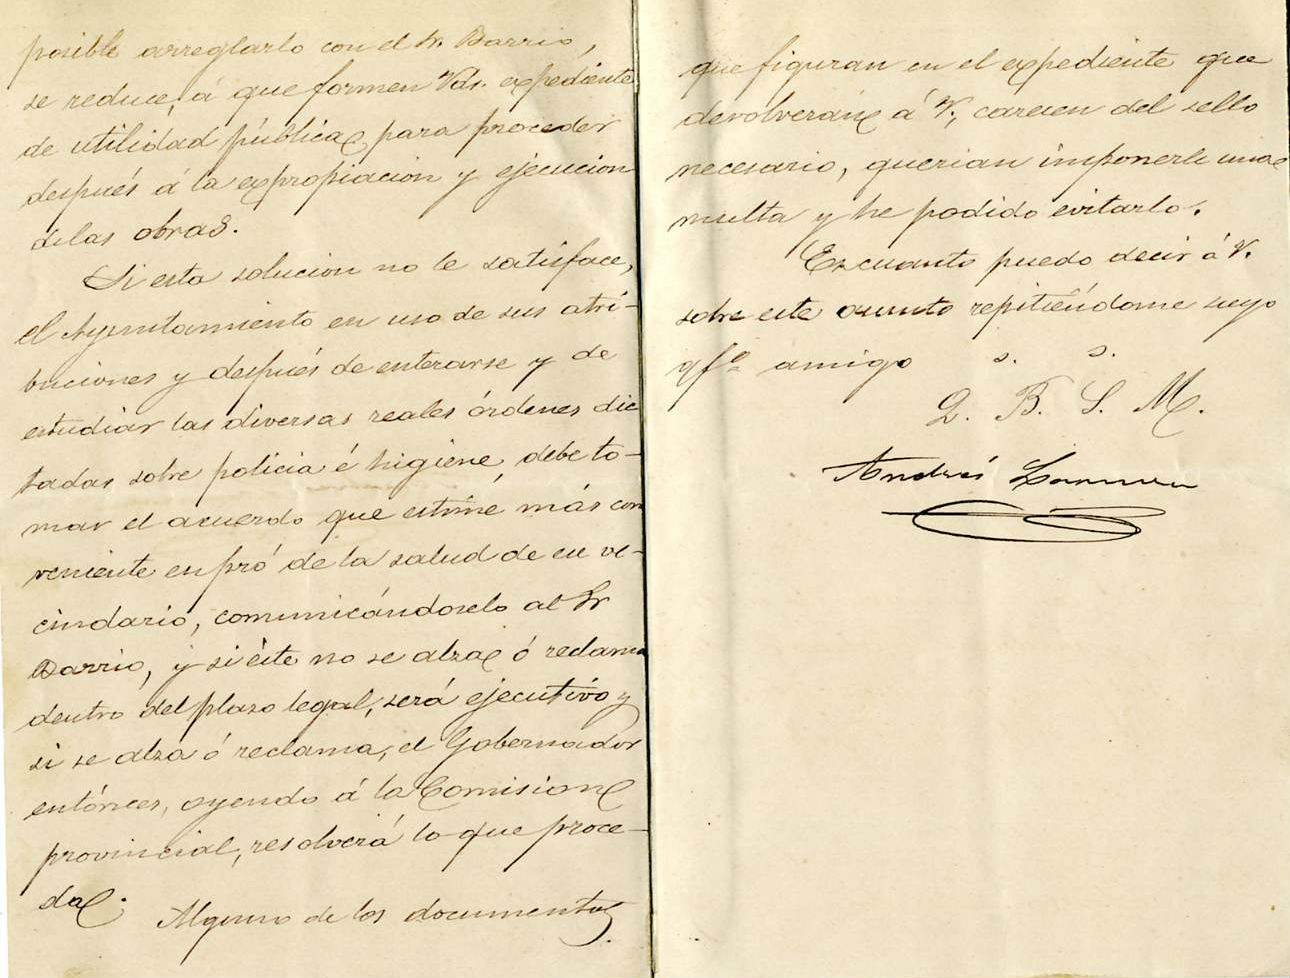 posible arreglarlo con el Sr. Barrio,
se reduce, á que formen Vds. expediente
de utilidad pública, para proceder
después á la expropiacion y ejecucion
de las obras.
Si esta solucion no le satisface,
el Ayuntamiento en uso de sus atri-
buciones y después de enterarse y de
estudiar las diversas reales órdenes dic
tadas sobre policia é higiene, debe to-
mar el acuerdo que estime más con
veniente en pró de la salud de su ve-
cindario, comunicándoselo al Sr
Barrio, y si éste no se alza ó reclama
dentro del plazo legal, será ejecutivo y
si se alza ó reclama, el Gobernador
entónces, oyendo á la Comision
provincial, resolverá lo que proce-
da.
Alguno de los documentos
que figuran en el expediente que
devolverán á V., carecen del sello
necesario, querian imponerle una
multa y he podido evitarlo.
Es cuanto puedo decir á V.
sobre este asunto repitiéndome suyo
af.º amigo s. s.
Q. B. S. M.
Andrés